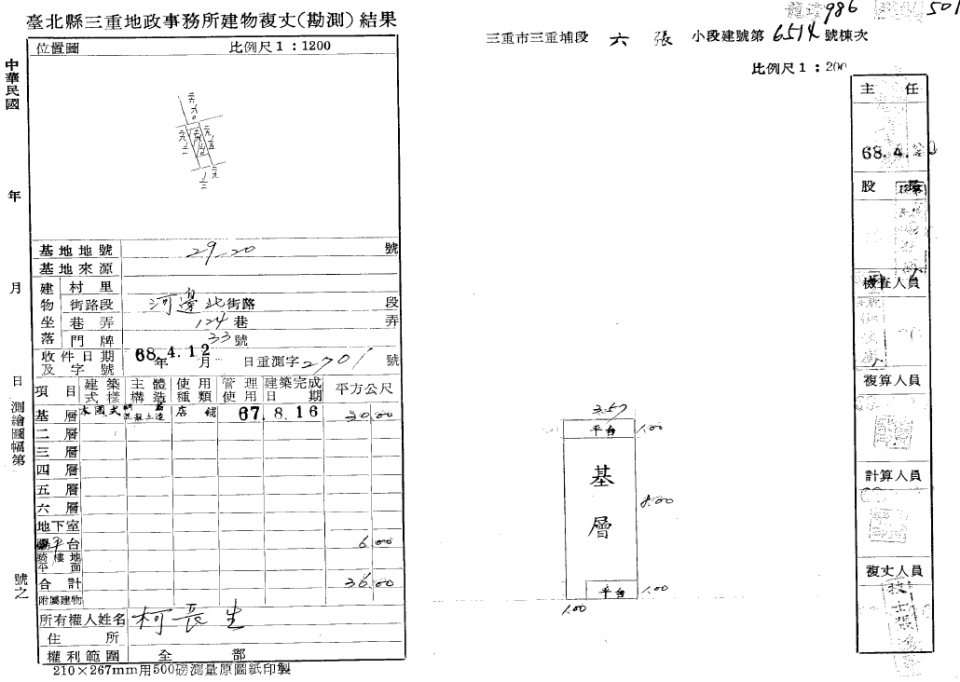 臺北縣三重地政事務所建物複丈(勘測)結果
位置圖 比例尺1:1200
中華民國 年 月 日 測繪圖幅第 號之
基地地號 29-20 號
基地來源
建物坐落
村里
街路段 河邊北街路 段
巷弄 124巷 弄
門牌 33號
收件日期及字號 68年4.月12日重測字2701號
項目 建築式樣 主體構造 使用種類 管理使用 建築完成日期 平方公尺
基層 本國式 店舖 67.8.16 30.00
二層
三層
四層
五層
六層
地下室
平台 6.00
騎樓地平面
合計 36.00
附屬建物
所有權人姓名 柯長生
住所
權利範圍 全部
210×267mm用500磅測量原圖紙印製
986 501
三重市三重埔段 六張 小段建號第6514號棟次
比例尺1:200
3.57
平台 1.00
基層
8.00
平台 1.00
1.00
主任
68.4.
股長
檢查人員
複算人員
計算人員
複丈人員
技士張